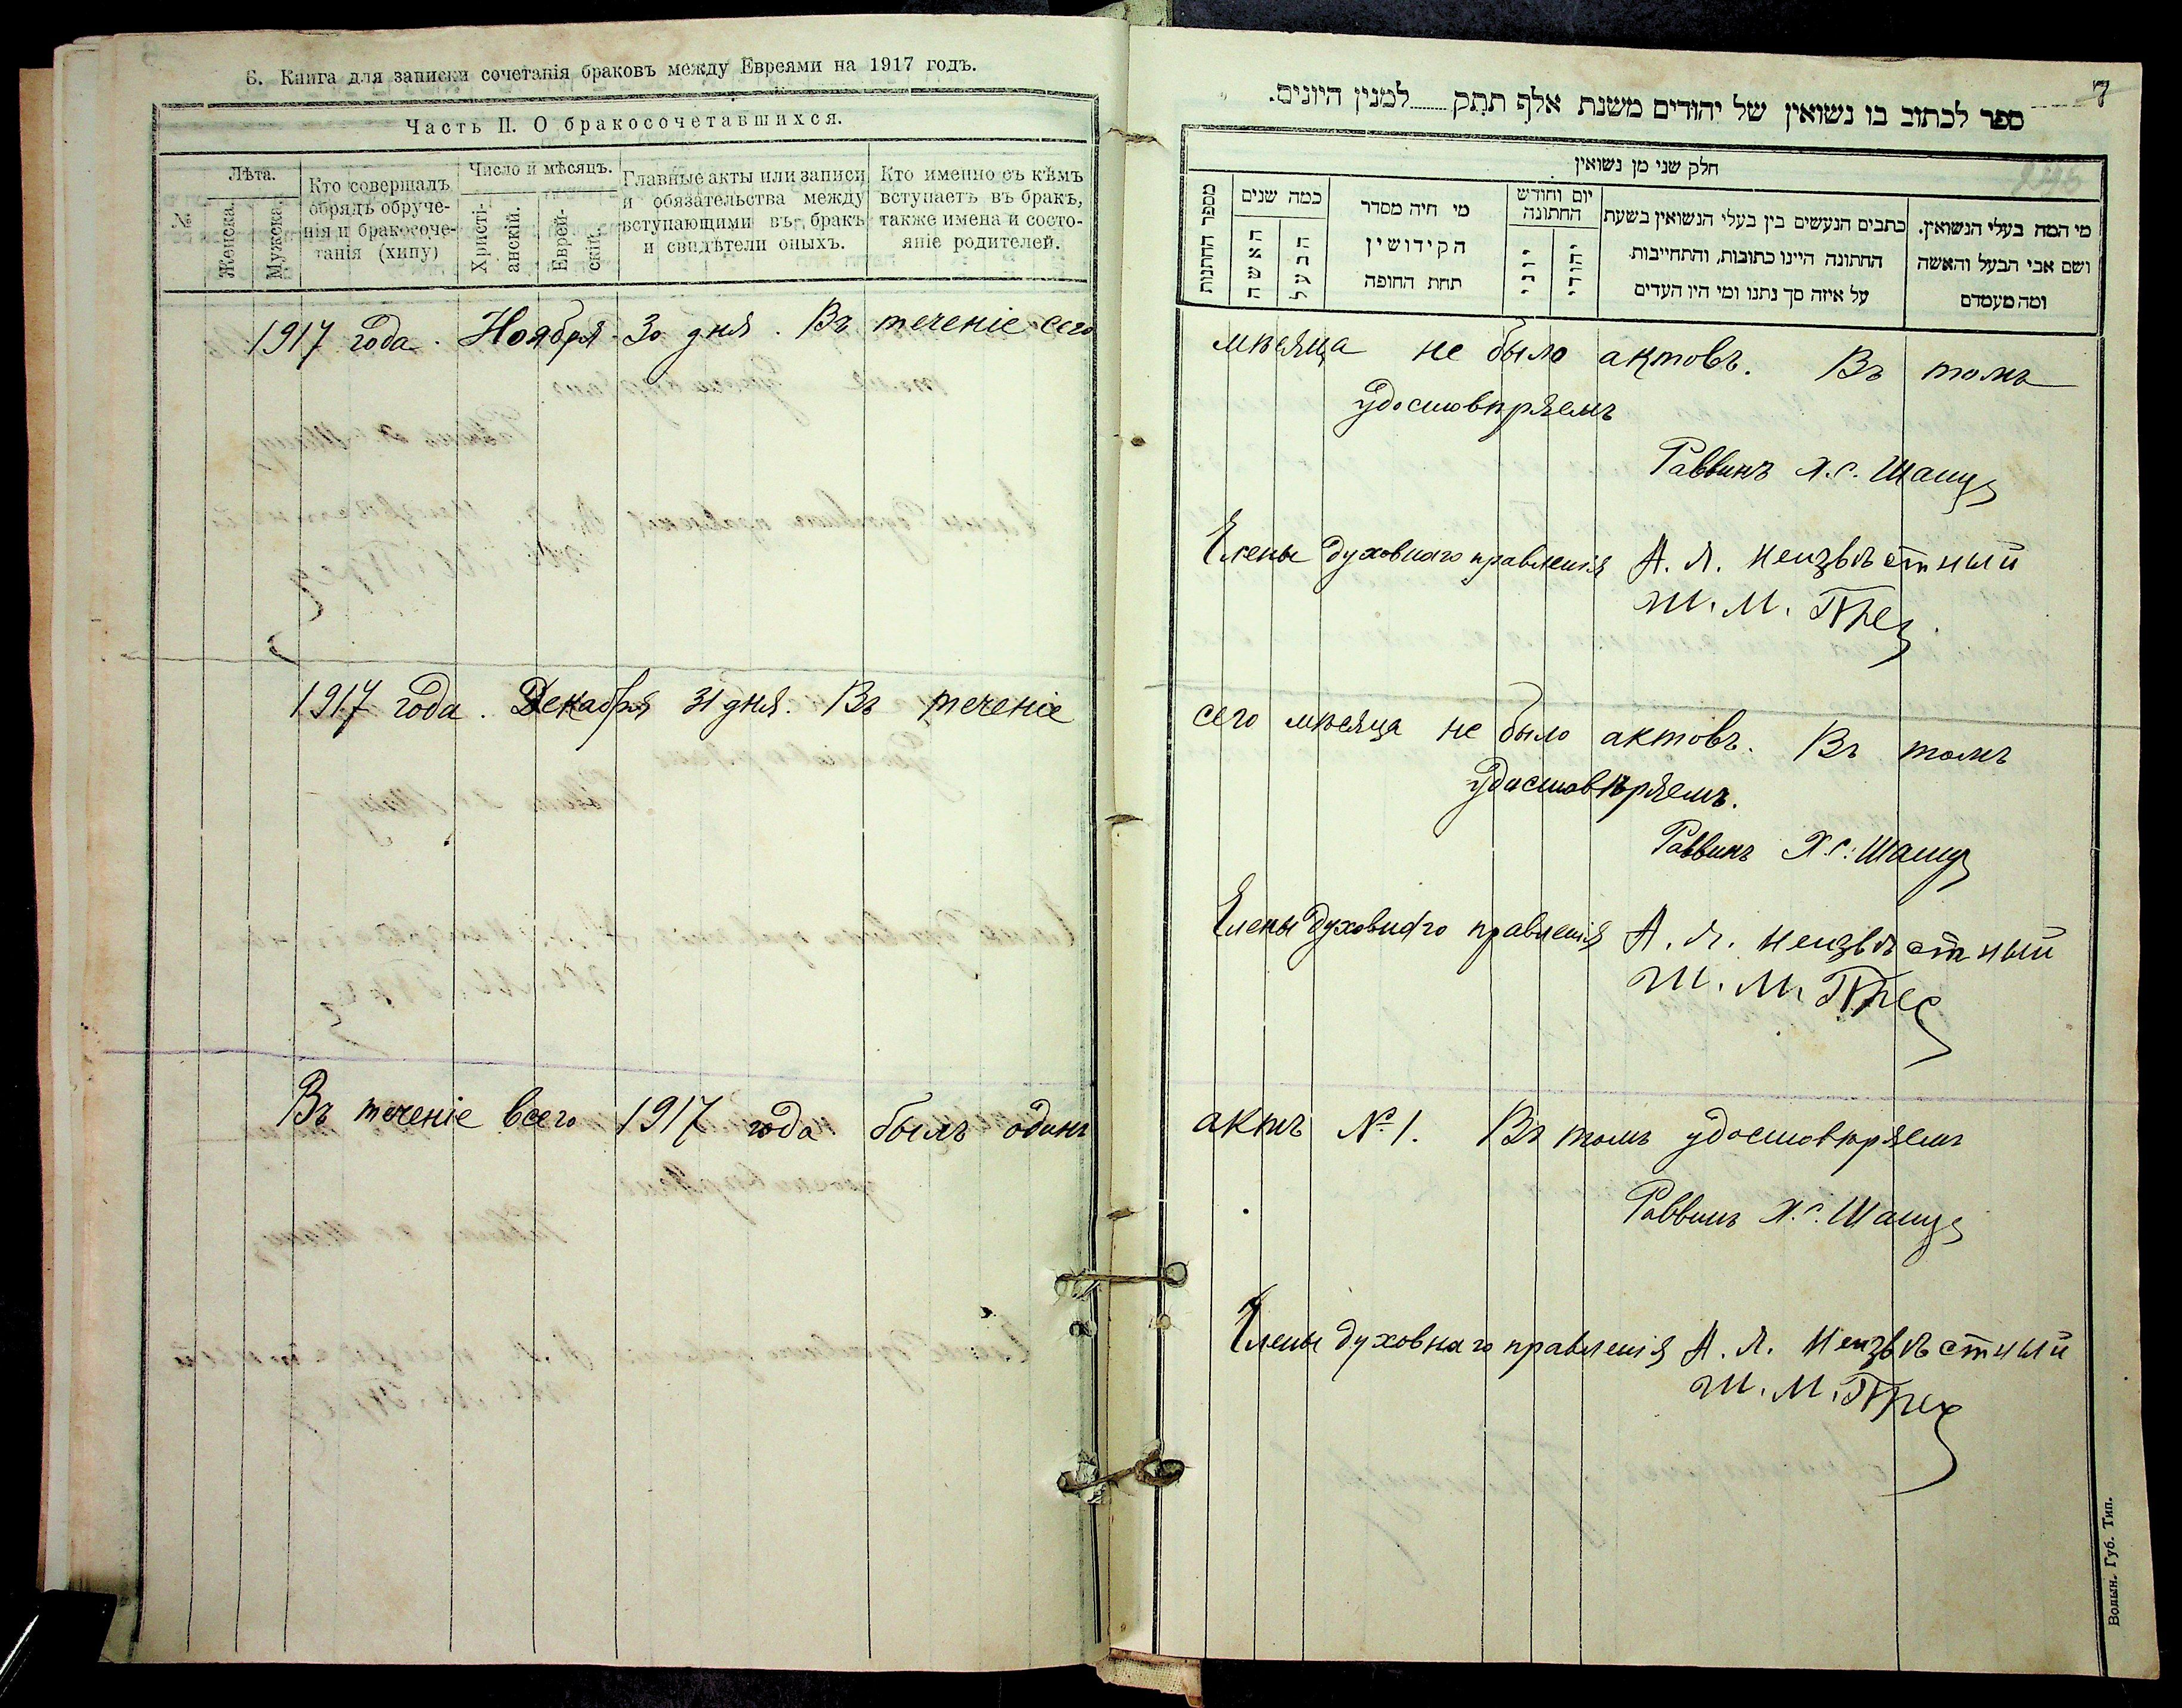 6. Книга для записки сочетанія браковъ между Евреями на 1917 годъ.
Часть II. О бракосочетавшихся.
№
Лѣта.
Женска.
Мужска.
Кто совершалъ
обрядъ обруче-
нія и бракосоче-
танія (хипу)
Число и мѣсяцъ.
Христі-
анскій.
Еврей-
скій.
Главные акты или записи
и обязательства между
вступающими въ бракъ
и свидѣтели оныхъ.
Кто именно съ кѣмъ
вступаетъ въ бракъ,
также имена и состо-
яніе родителей.
1917 года. Ноября 30 дня. Въ теченіе сего
1917 года. Декабря 31 дня. Въ теченіе
Въ теченіе всего 1917 года былъ одинъ
7
ספר לכתוב בו נשואין של יהודים משנת אלף תתק למנין היונים.
246
חלק שני מן נשואין
מספר החתונות
כמה שנים
האשה
הבעל
מי חיה מסדר
הקידושין
תחת החופה
יום וחודש
החתונה
יוני
יהודי
כתבים הנעשים בין בעלי הנשואין בשעת
החתונה היינו כתובות, והתחייבות
על איזה סך נתנו ומי היו העדים
מי המה בעלי הנשואין.
ושם אבי הבעל והאשה
ומה מעמדם
мѣсяца не было актовъ. Въ томъ
удостовѣряемъ
Раввинъ Х.С. Шащ
Члены духовнаго правленія А. Л. Неизвѣстный
Ш. М.
сего мѣсяца не было актовъ. Въ томъ
удостовѣряемъ.
Раввинъ Х.С. Шащ
Члены духовнаго правленія А. Л. Неизвѣстный
Ш. М.
актъ № 1. Въ томъ удостовѣряемъ
Раввинъ Х.С. Шащ
Члены духовнаго правленія А. Л. Неизвѣстный
Ш. М.
Волын. Губ. Тип.